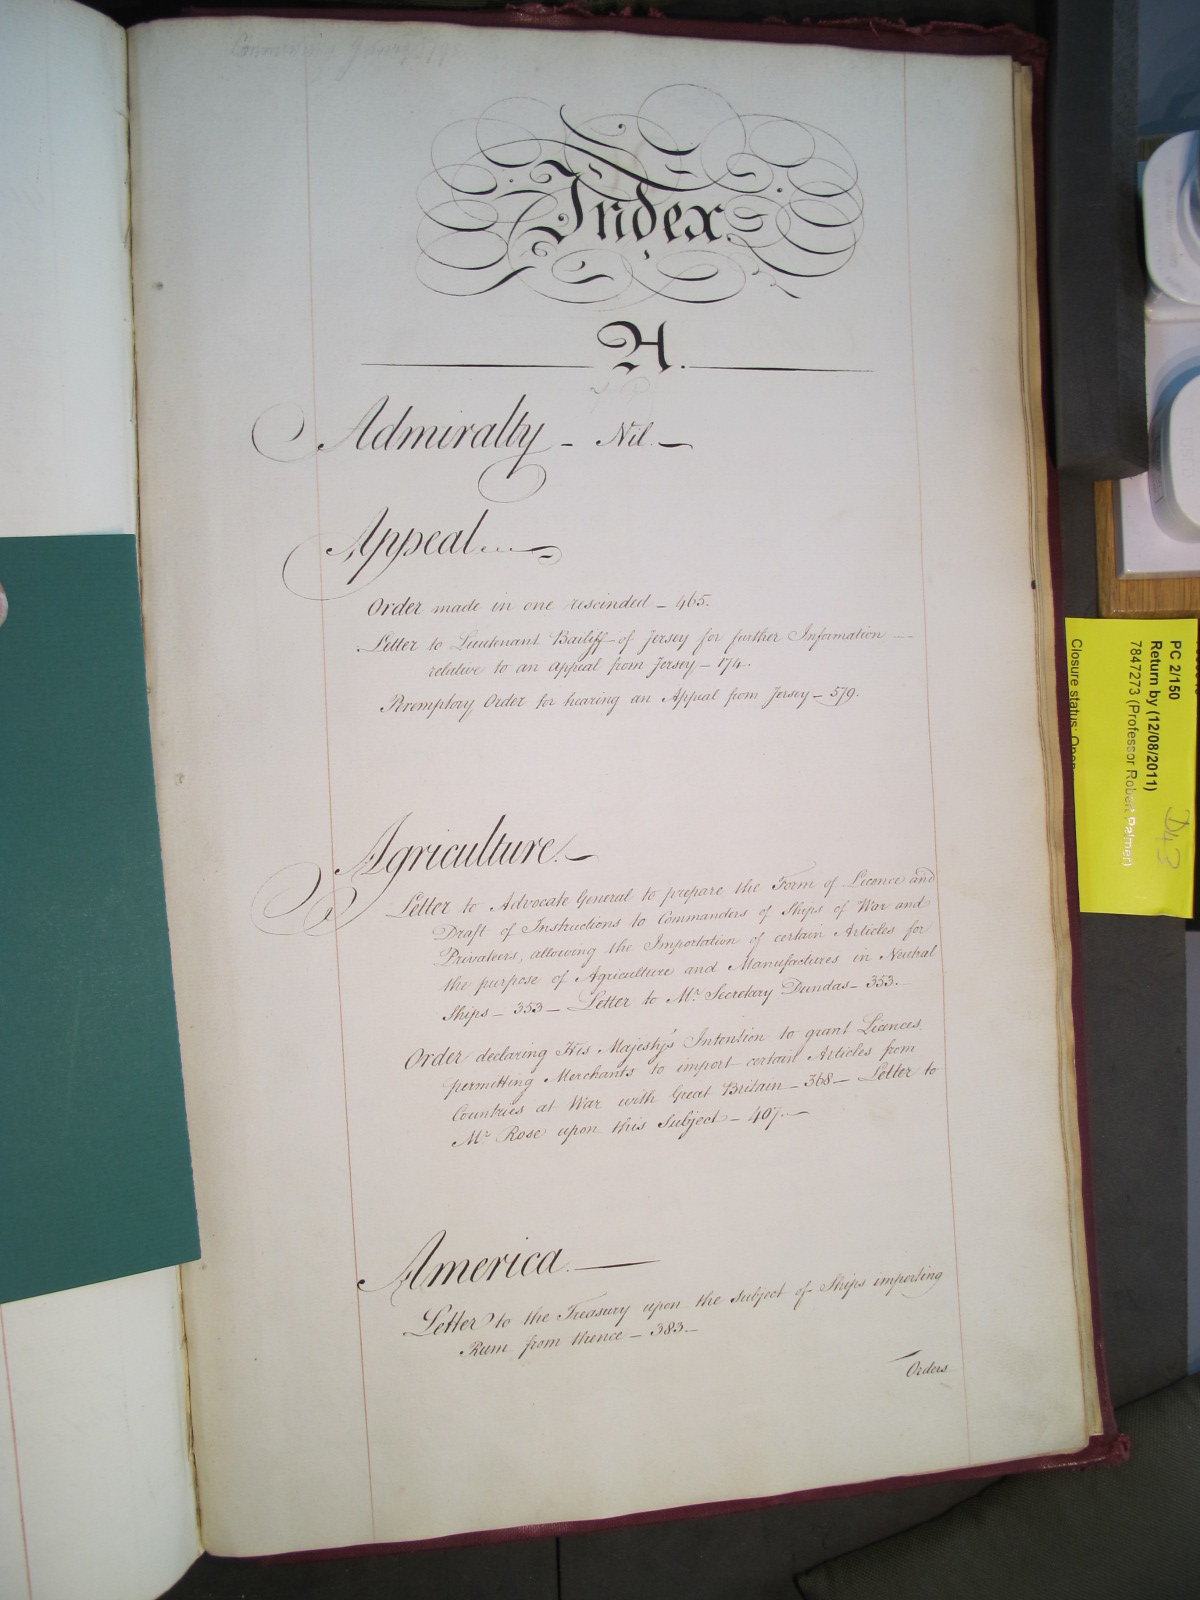 Index
A.
Admiralty - Nil. -
Appeal
Order made in one rescinded - 465.
Letter to Lieutenant Bailiff of Jersey for further Information -
relative to an appeal from Jersey - 174.
Peremptory Order for hearing an Appeal from Jersey - 579.
Agriculture. -
Letter to Advocate General to prepare the Form of Licence and
Draft of Instructions to Commanders of Ships of War and
Privateers, allowing the Importation of certain Articles for
the purpose of Agriculture and Manufactures in Neutral
Ships - 353 - Letter to Mr. Secretary Dundas - 353. -
Order declaring His Majesty's Intention to grant Licences,
permitting Merchants to import certain Articles from
Countries at War with Great Britain - 368 - Letter to
Mr. Rose upon this Subject - 407. -
America. -
Letter to the Treasury upon the subject of Ships importing
Rum from thence - 383. -
Orders
PC 2/150
Return by (12/08/2011)
7847273 (Professor Robert Palmer)
Closure status: Open
D43